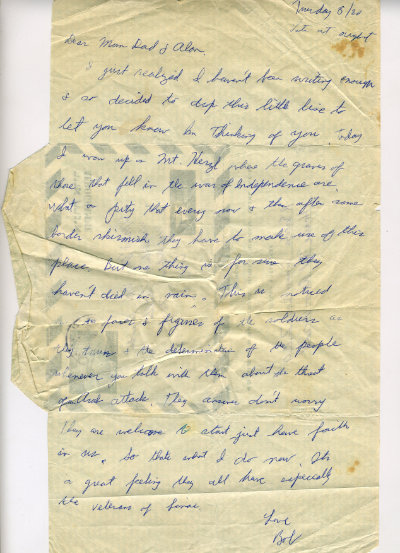 Tuesday 8/20
Late at night
Dear Mom Dad & Alan,
I just realized I haven't been writing enough
& so decided to drop this little line to
let you know Im thinking of you. Today
I was up on Mt Herzl where the graves of
those that fell in the war of Independence are.
What a pity that every now & then after some
border skirmish they have to make use of this
place. But one thing is for sure they
haven't died in vain. This is noticed
faces & figures of the soldiers as
they & the determination of the people
whenever you talk with them about the threat
of attack. They answer don't worry
They are welcome to start just have faith
in us. So thats what I do now. Its
a great feeling they all have especially
the veterans of Sinai.
Love
Bob